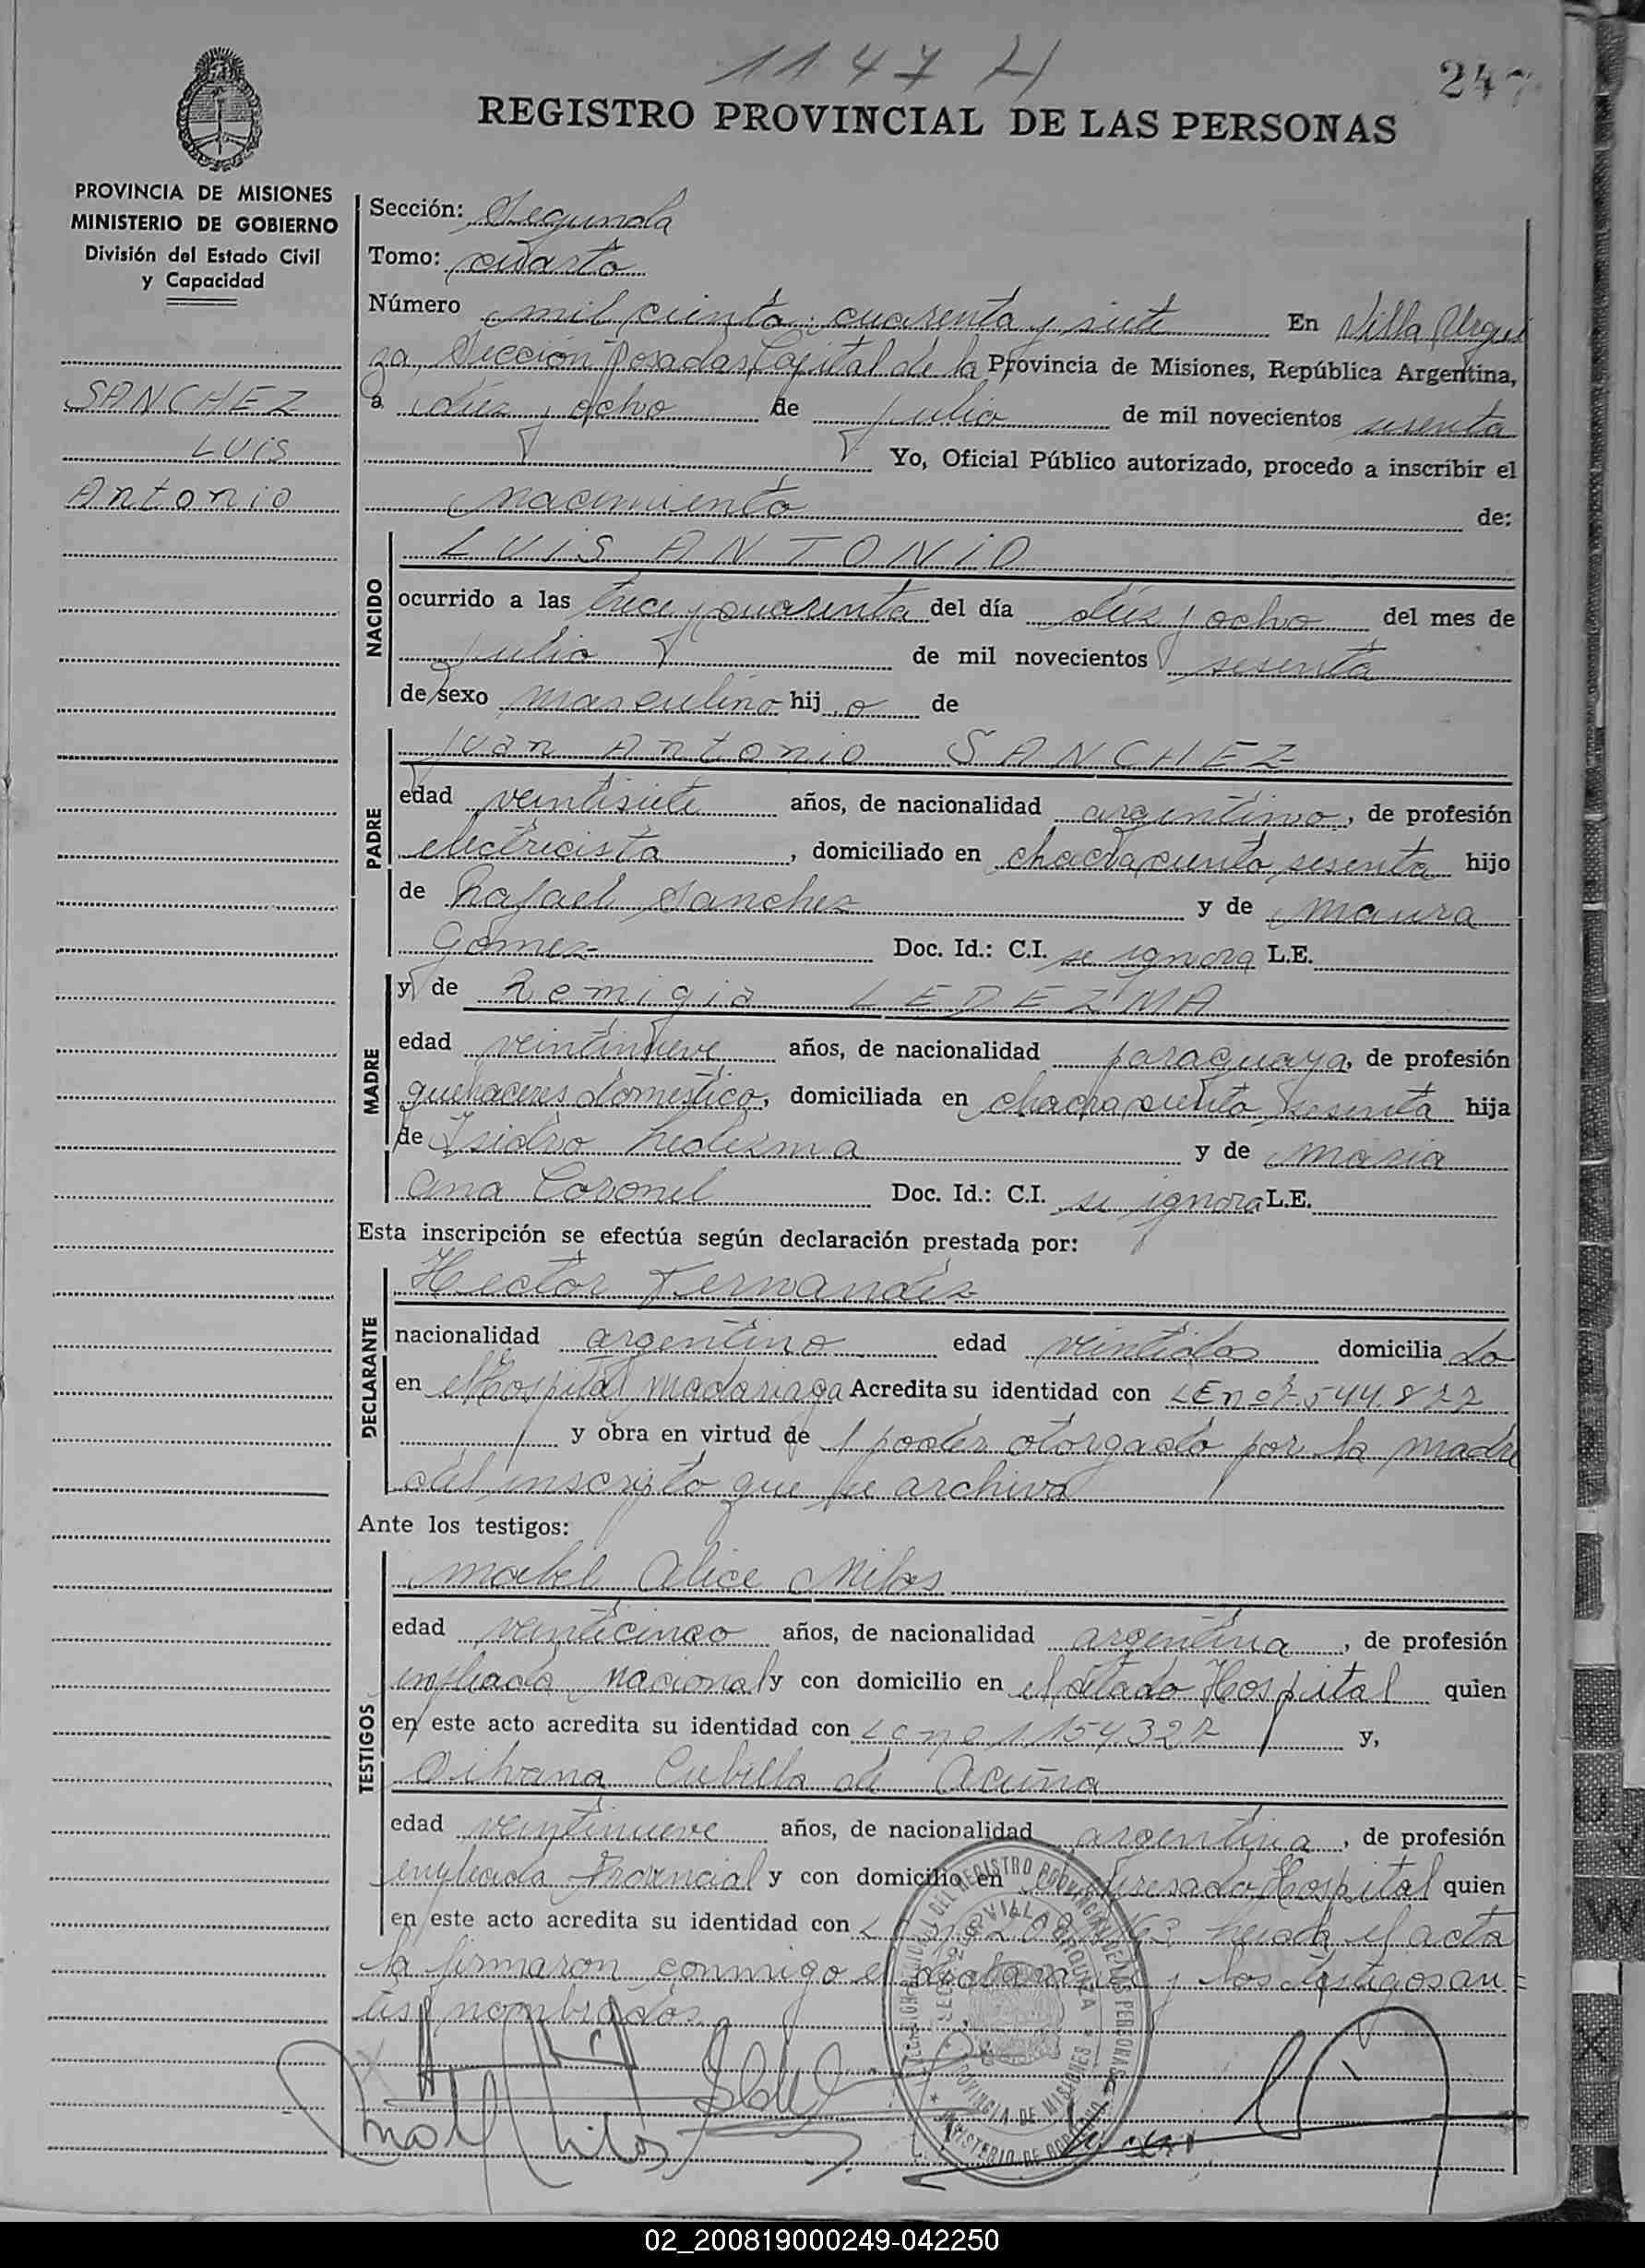 1147 H
247
REGISTRO PROVINCIAL DE LAS PERSONAS
PROVINCIA DE MISIONES
MINISTERIO DE GOBIERNO
División del Estado Civil
y Capacidad
SANCHEZ
LUIS
Antonio
Sección: Segunda
Tomo: cuarto
Número mil ciento cuarenta y siete En Villa Urqui
za, Sección Posadas Capital de la Provincia de Misiones, República Argentina,
a diez y ocho de julio de mil novecientos sesenta
Yo, Oficial Público autorizado, procedo a inscribir el
nacimiento de:
NACIDO
LUIS ANTONIO
ocurrido a las trece y cuarenta del día diez y ocho del mes de
julio de mil novecientos sesenta
de sexo masculino hijo de
PADRE
Juan Antonio SANCHEZ
edad veintisiete años, de nacionalidad argentino, de profesión
electricista, domiciliado en chacra ciento sesenta hijo
de Rafael Sanchez y de Maura
Gomez Doc. Id.: C.I. se ignora L.E.
MADRE
y de Remigia LEDEZMA
edad veintinueve años, de nacionalidad paraguaya, de profesión
quehaceres domestico, domiciliada en chacra ciento sesenta hija
de Isidro Ledezma y de Maria
Ana Coronel Doc. Id.: C.I. se ignora L.E.
Esta inscripción se efectúa según declaración prestada por:
DECLARANTE
Hector Fernandez
nacionalidad argentino edad veintidos domiciliado
en el Hospital Madariaga Acredita su identidad con LE nº 7.544.822
y obra en virtud de poder otorgado por la madre
del inscripto que se archiva
Ante los testigos:
TESTIGOS
Mabel Alice Milos
edad veinticinco años, de nacionalidad argentina, de profesión
empleada nacional y con domicilio en el citado Hospital quien
en este acto acredita su identidad con LC nº 1154.322 y,
Cubilla de Acuña
edad veintinueve años, de nacionalidad argentina, de profesión
empleada Provincial y con domicilio en el expresado Hospital quien
en este acto acredita su identidad con Leida el acta
la firmaron conmigo el declarante y los testigos an=
tes nombrados.
REGISTRO PROVINCIAL DE LAS PERSONAS
VILLA URQUIZA
PROVINCIA DE MISIONES
MINISTERIO DE GOBIERNO
02_200819000249-042250